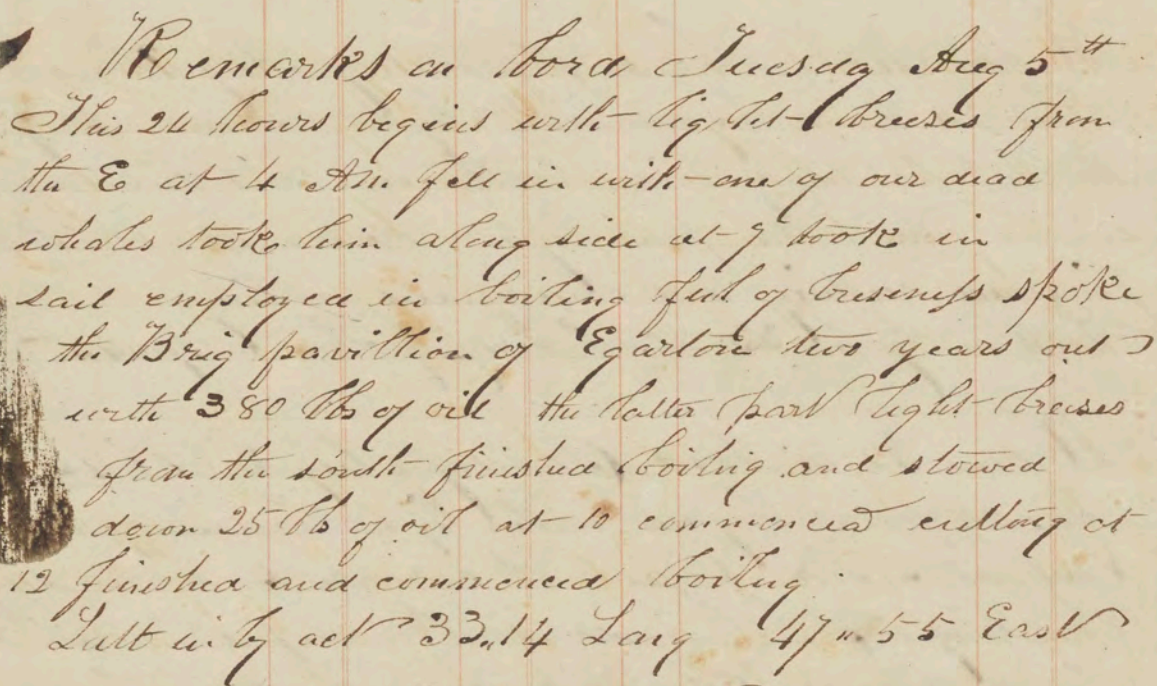 Remarks on bord Tuesday Aug 5th
This 24 hours begins with light breezes from
the E at 4 AM. fell in with one of our dead
whales took him along side at 7 took in
sail employed in boiling full of buseness spoke
the Brig pavillion of two years out
with 380 bbs of oil the latter part light breezes
from the south finished boiling and stowed
down 25 bb of oil at 10 commenced cutting at
12 finished and commenced boiling
Latt in by act 33,,14 Long 47,,55 East